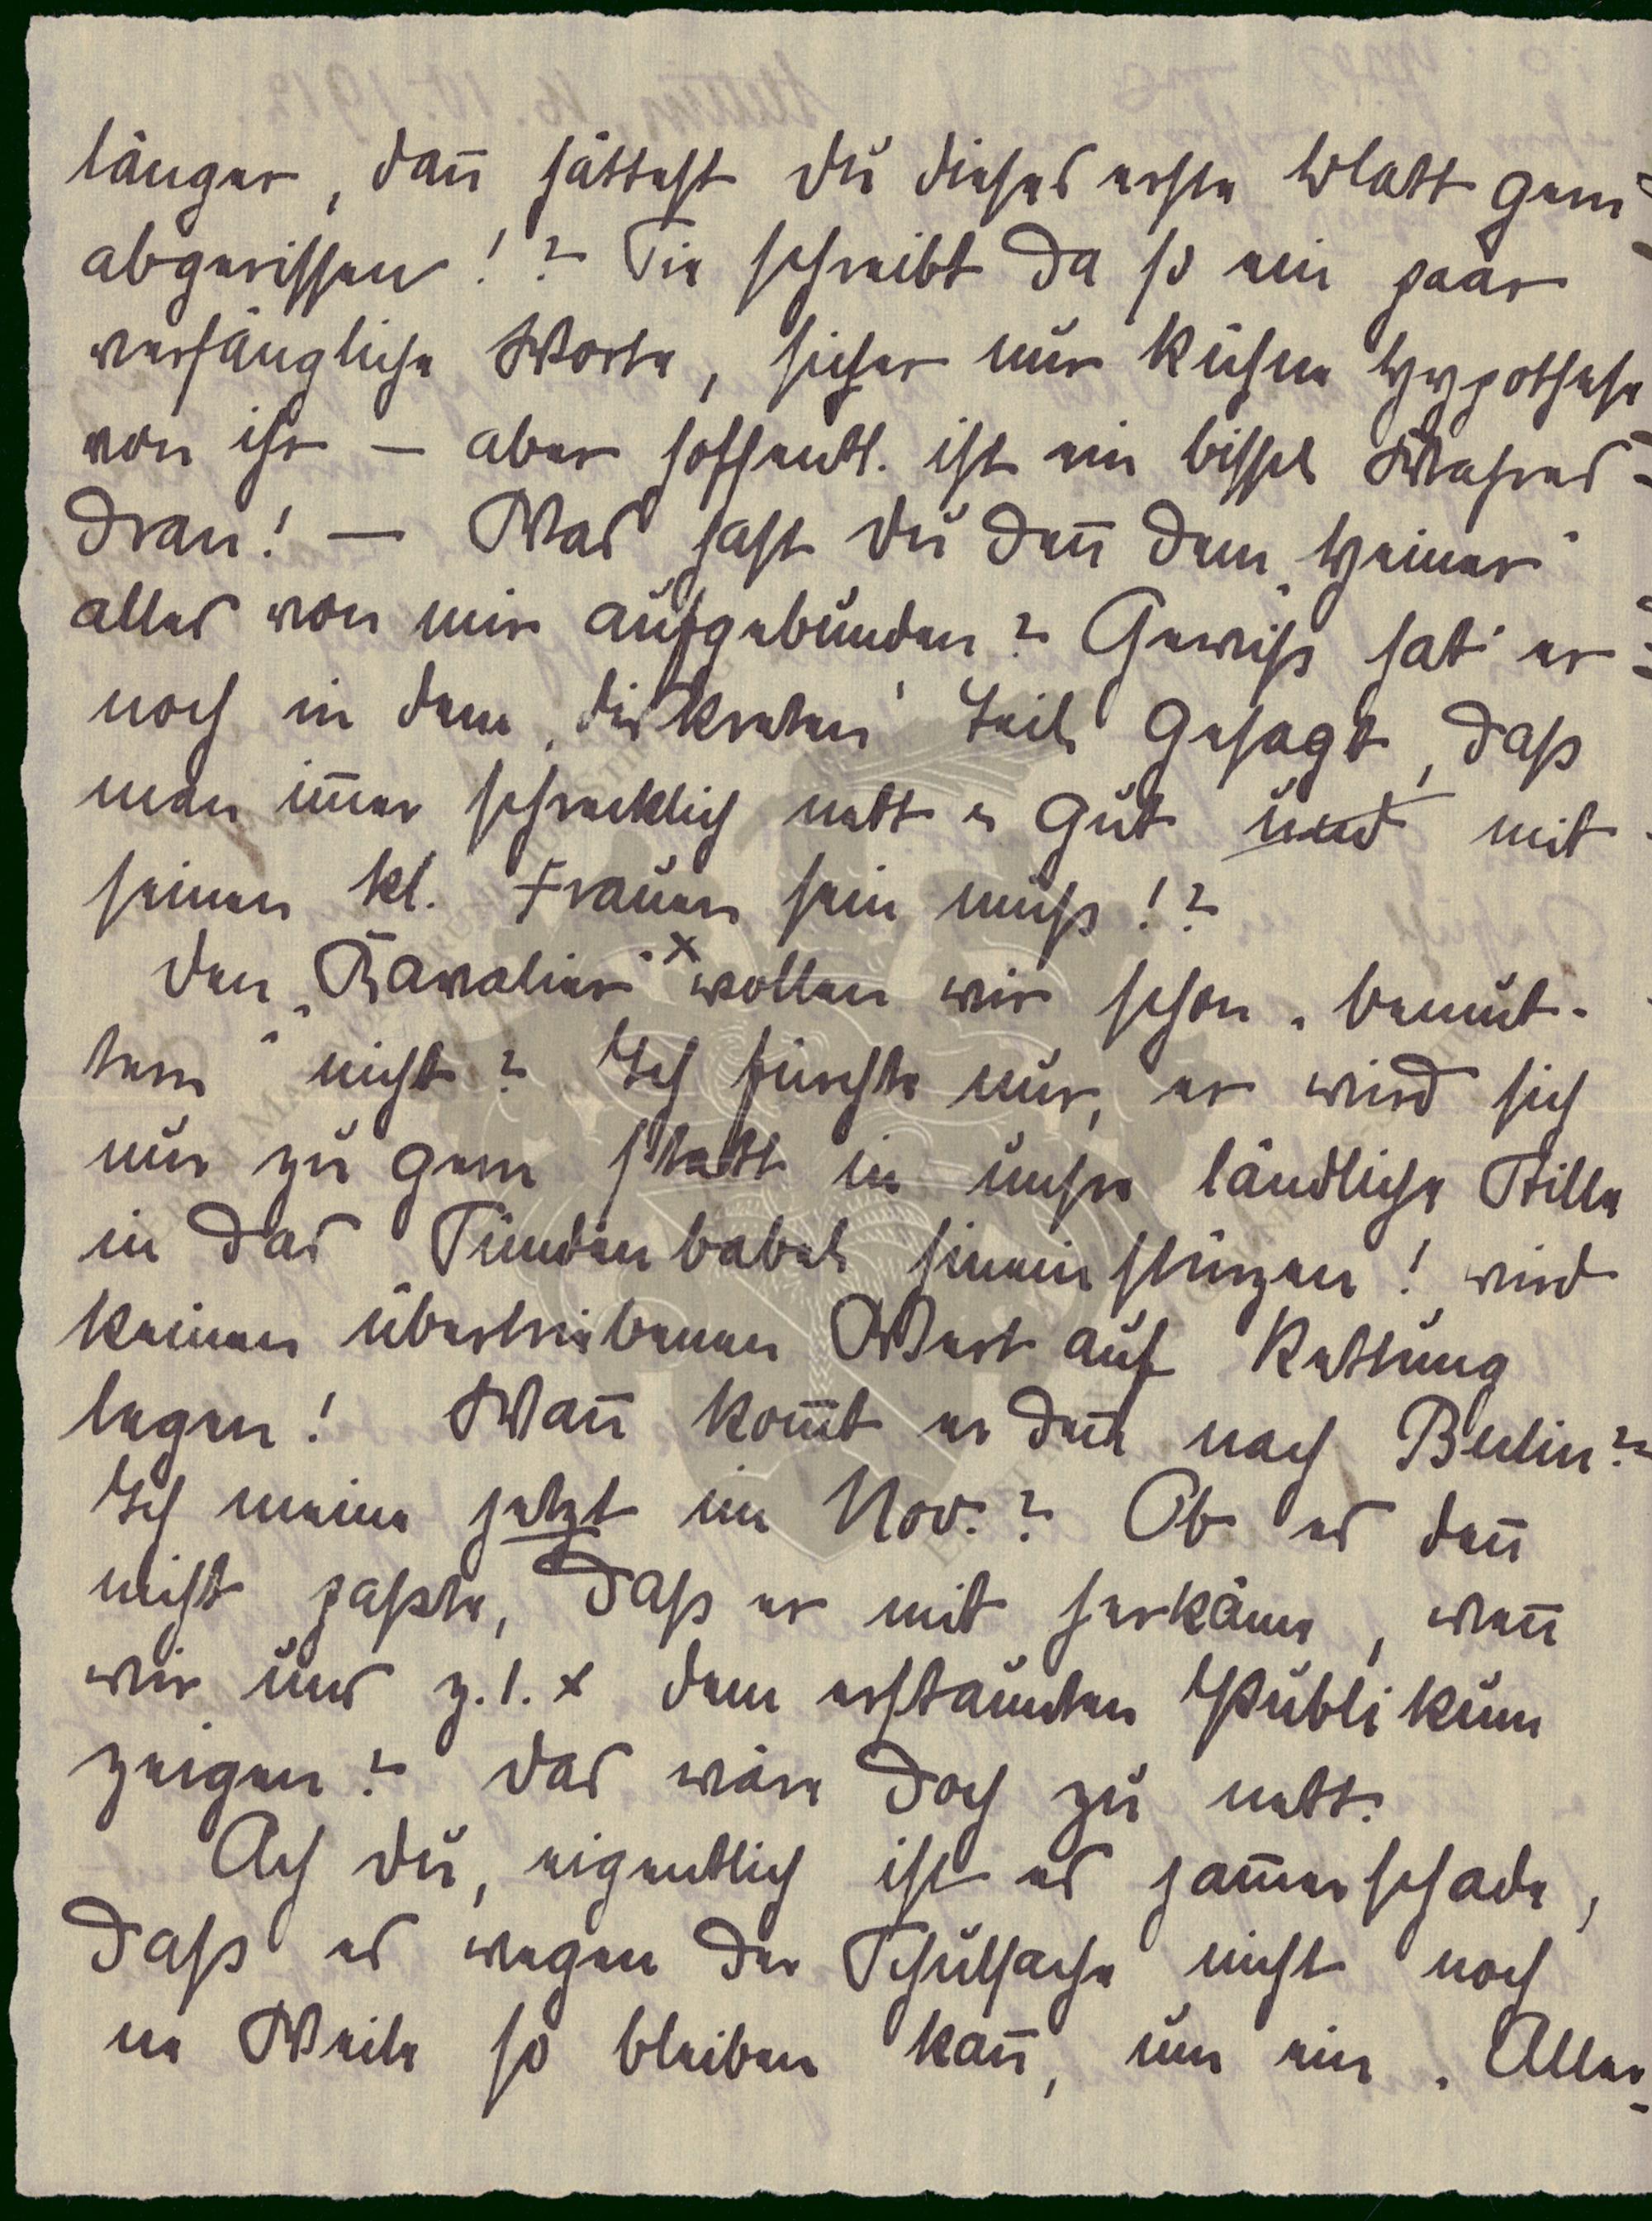 länger, dan̄ hättest Du dieses erste Blatt gern
abgerissen!? Sie schreibt da so ein paar
verfängliche Worte, sicher nur kühne Hypothese
von ihr – aber hoffentl. ist ein bissel Wahres
dran! – Was hast Du den̄ dem „Heiner“
alles von mir aufgebunden? Gewiß hat er
noch in dem „diskreten“ Teil gesagt, daß
man im̄er schrecklich nett u. gut und mit
seinen kl. Frauen sein muß!?
Den „Kavalier“ x wollen wir schon „bemut-
tern“ nicht? Ich fürchte nur, er wird sich
nur zu gern statt in unsre ländliche Stille
in das Sündenbabel hineinstürzen! wird
keinen übertriebenen Wert auf Rettung
legen! Wan̄ kom̄t er den̄ nach Berlin?
Ich meine jetzt im Nov.? Ob es den̄
nicht passte, daß er mit herkäme, wen̄
wir uns z. 1. x dem erstaunten Publikum
zeigen? Das wäre doch zu nett.
Ach Du, eigentlich ist es jam̄erschade,
daß es wegen der Schulsache nicht noch
ne Weile so bleiben kan̄, um ein „Aller-